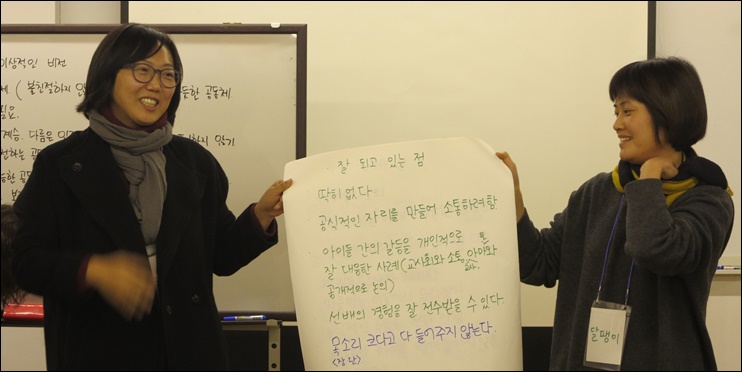 이상적인 비전
체 ( 불친절하지 않 듯한 공동체.
필요.
계승. 다름은 인 하지 않기
잘 되고 있는 점
딱히 없다
공식적인 자리를 만들어 소통하려함
아이들 간의 갈등을 개인적으로
잘 대응한 사례(교사회와 소통, 아마와
공개적으로 논의)
선배의 경험을 잘 전수받을 수 있다.
목소리 크다고 다 들어주지 않는다.
<장단>
달팽이